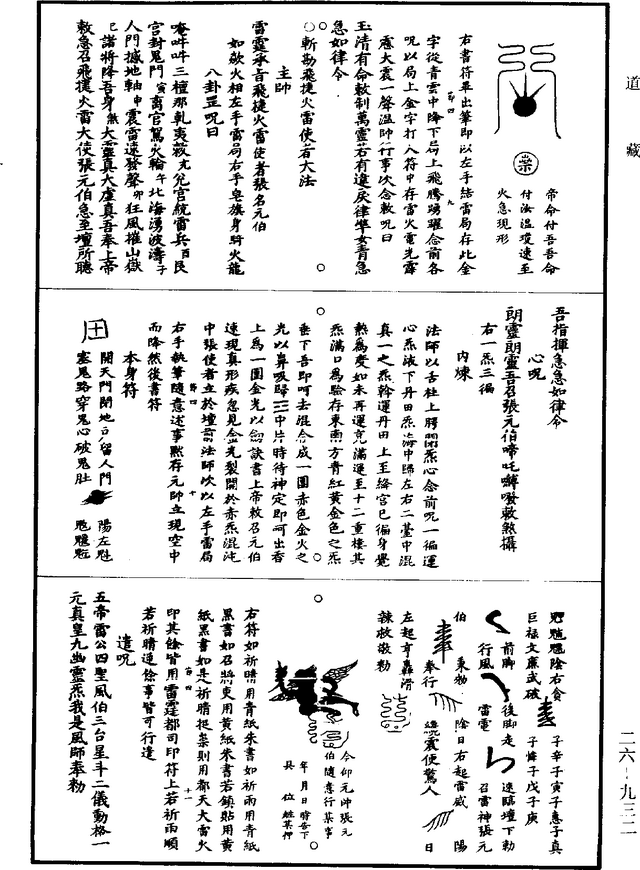 道藏
帝命付吾吾命
付汝溫瓊速至
火急現形
右書符畢出筆即以左手結雷局存此金
字從青雲中降下局上飛騰踴躍念前各
呪以局上金字打入符中存雷火電光霹
靂大震一聲溫帥行事次念敕呪曰
玉清有命敕制萬靈若有違戾律準女青急
急如律令
斬勘飛捷火雷使者大法
主帥
雷霆承旨飛捷火雷使者張名元伯
如歘火相左手雷局右手皂旗身騎火龍
八卦罡呪曰
唵吽吽三檀那乾夷蔌亢兌宮統雷兵百民
宮封鬼門寅离宮駕火輪午北海湧波濤子
人門撼地軸申震雷遠發聲卯狂風摧山嶽
巳諸將降吾身無大靈真大虛真吾奉上帝
敕急召飛捷火雷大使張元伯急至壇所聽
吾指揮急急如律令
心呪
朗靈朗靈吾召張元伯啼吒嚩㗭敕煞攝
右一炁三徧
內煉
法師以舌柱上腭閉炁心念前呪一徧運
心炁液下丹田炁海中歸左右二臺中混
真一之炁斡運丹田上至絳宮巳徧身覺
熱為度如未再運充滿運至十二重樓其
炁滿口為驗存東南方青紅黃金色之炁
垂下吾即呵去混合成一團赤色金火之
光以鼻吸歸三中片時待神定即呵出香
上為一團金光以劒訣書上帝敕召元伯
速現真形疾忽見金光製開於赤炁混沌
中張使者立於壇前法師次以左手雷局
右手執筆隨意述事默存元帥立現空中
而降然後書符
本身符
開天門閉地户留人門
塞鬼路穿鬼心破鬼肚
陰右貪
巨祿文廉武破
子辛子寅子惠子真
子幃子戊子庚
前脚
行風
後脚走
雷電
速臨壇下勅
召雷神張元
伯
秉物
陰日右起雷威
陽
左起亨轟滑
奉行
遶
震使驚人
日
辣救敬勑
今仰元帥張元
伯隨意行某事
年月日時告下
具位姓某押
右符如祈晴用青紙朱書如祈雨用青紙
黑書如召將吏用黃紙朱書若鎮貼用黃
紙黑書如是祈晴捉祟則用都天大雷火
印其餘皆用雷霆都司印符上若祈雨順
若祈晴逆餘事皆可行遣
遣呪
五帝雷公四聖風伯三台星斗二儀動格一
元真皇九幽靈炁我是風師奉勑
二六—九三二